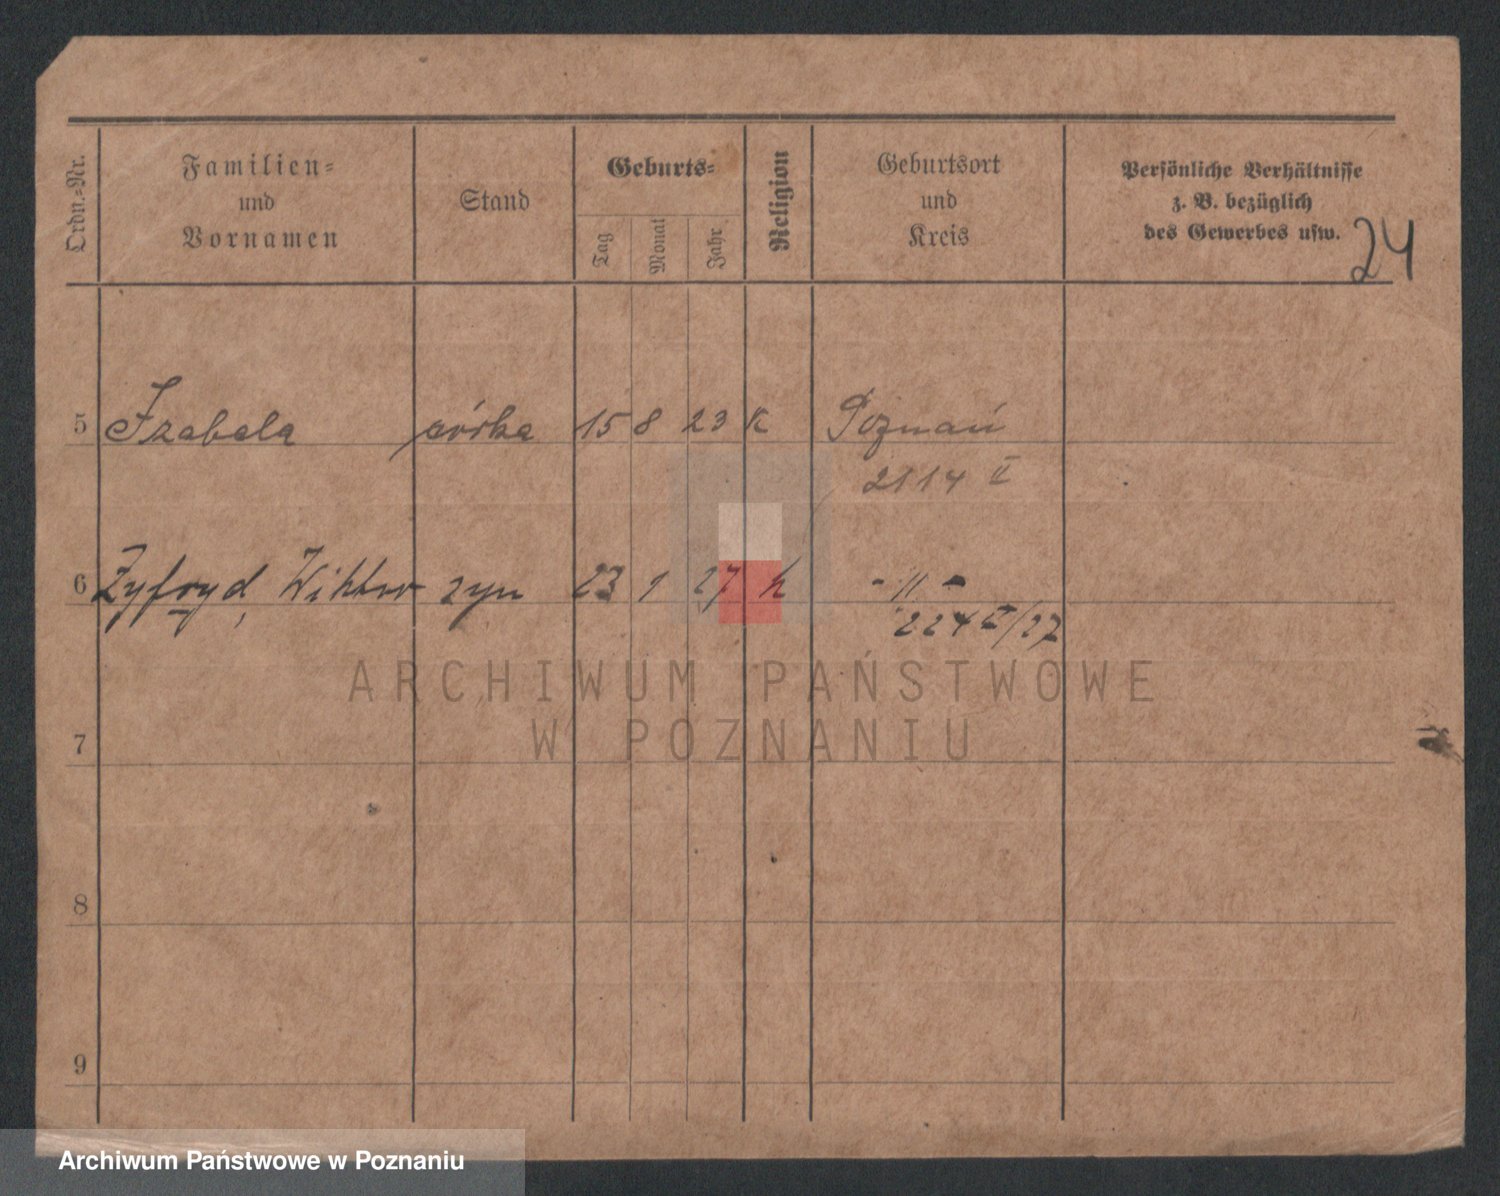 Ordn.-Nr.
Familien-
und
Vornamen
Stand
Geburts-
Tag
Monat
Jahr
Religion
Geburtsort
und
Kreis
Persönliche Verhältnisse
z. B. bezüglich
des Gewerbes usw.
24
5 Izabela córka 15 8 23 K Poznań
2114 II
6 Zyfryd, Wiktor syn 23 1 27 k - 11 -
224 II/27
ARCHIWUM PAŃSTWOWE
W POZNANIU
7
8
9
Archiwum Państwowe w Poznaniu